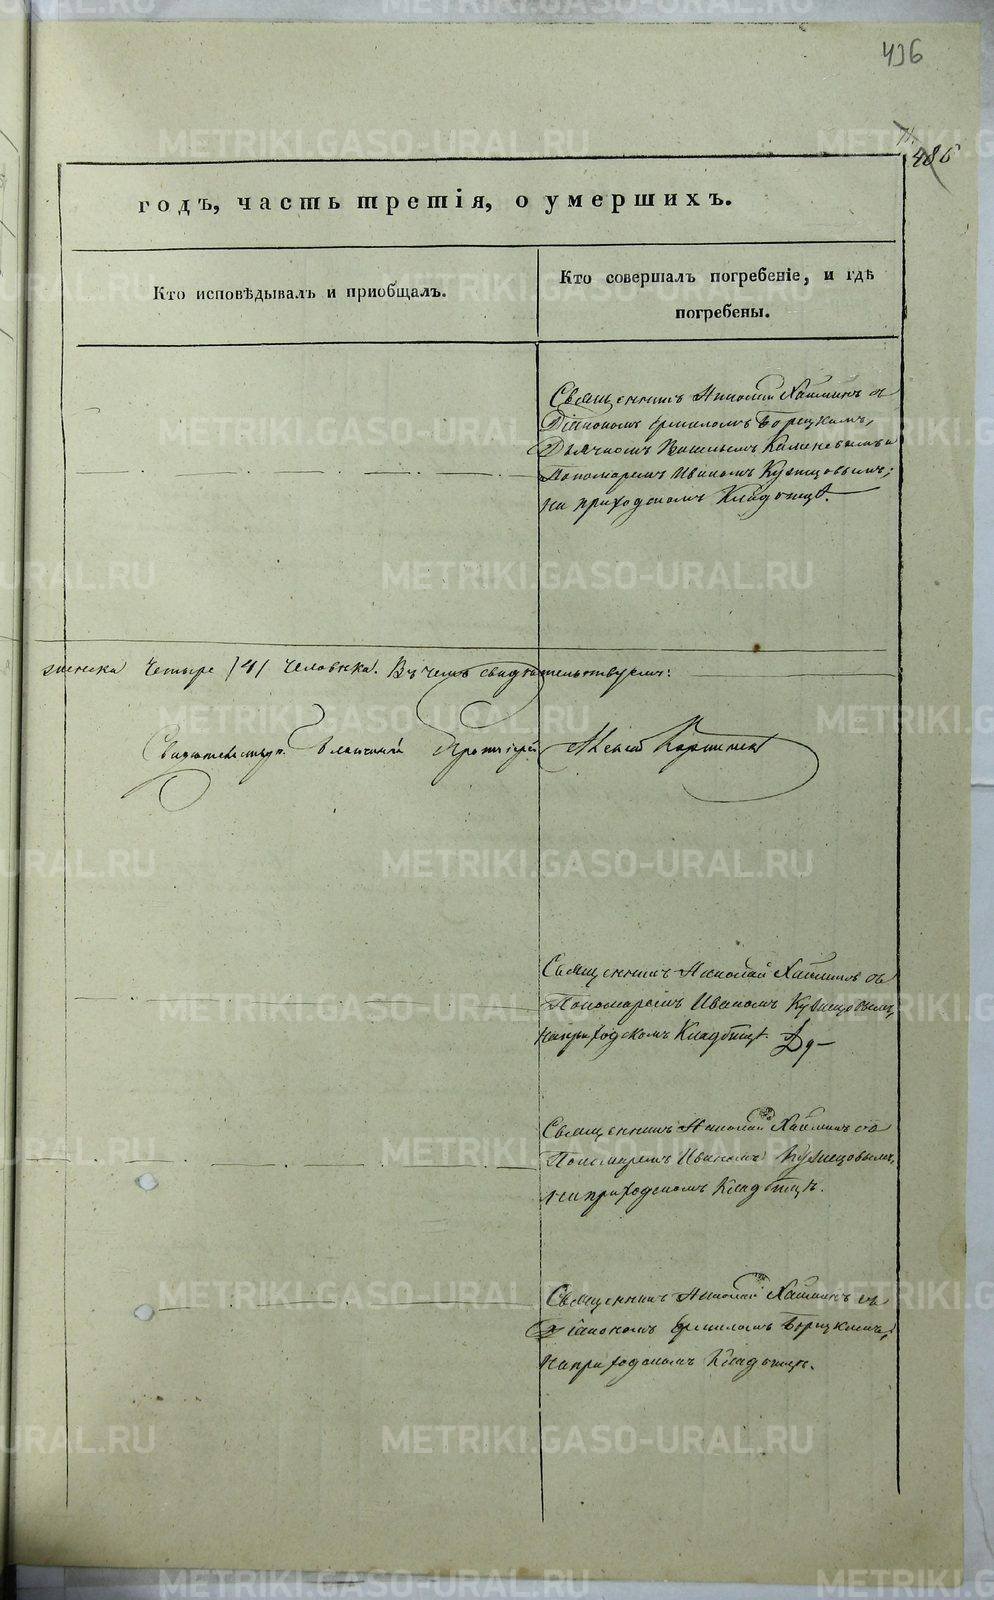 436
486
годъ, часть третія, о умершихъ.
Кто исповѣдывалъ и приобщалъ.
Кто совершалъ погребеніе, и гдѣ
погребены.
Священникъ Николай Хатминъ съ
Діакономъ Ермиломъ Борецкимъ,
Дьячкомъ Василіемъ и
Пономаремъ Иваномъ Кузнецовымъ;
на приходскомъ Кладбищѣ.
Четыре /4/ человѣка. Въ чемъ свидѣтельствуемъ:
Благочинный Протоіерей
Священникъ Николай Хатминъ съ
Пономаремъ Иваномъ Кузнецовымъ,
на приходскомъ Кладбищѣ.
Священникъ Николай Хатминъ съ
Пономаремъ Иваномъ Кузнецовымъ,
на приходскомъ Кладбищѣ.
Священникъ Николай Хатминъ съ
Діакономъ Ермиломъ Борецкимъ,
на приходскомъ Кладбищѣ.
METRIKI.GASO-URAL.RU